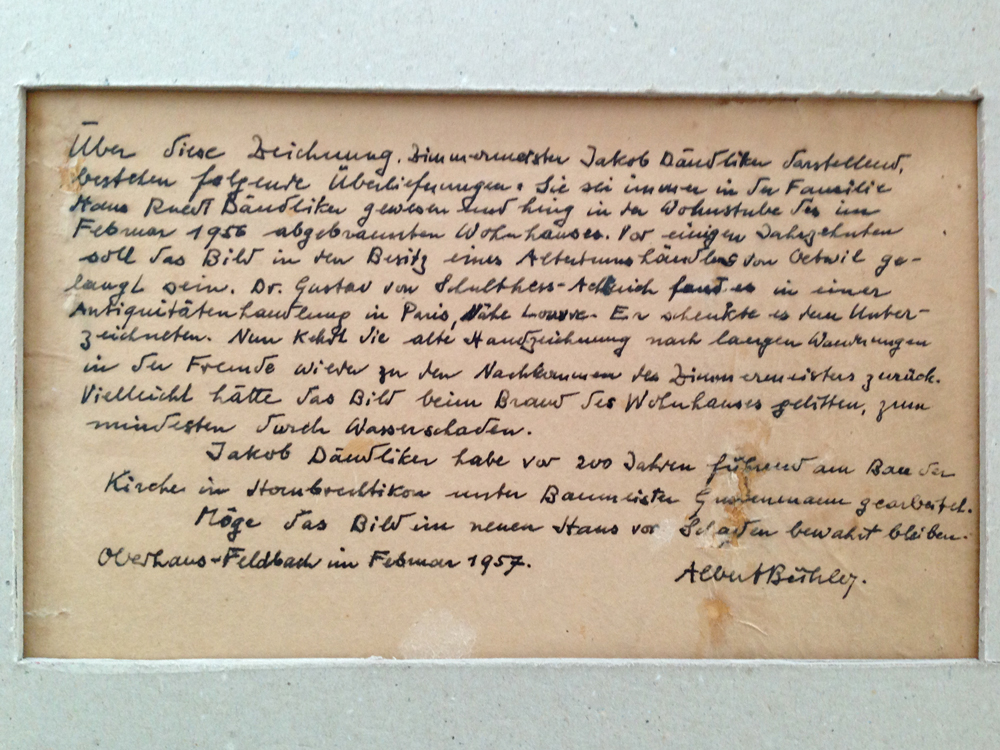 Über diese Zeichnung, Zimmermeister Jakob Dändliker darstellend,
bestehen folgende Überlieferungen: Sie sei immer in der Familie
Hans Ruedi Dändliker gewesen und hing in der Wohnstube des im
Februar 1956 abgebrannten Wohnhauses. Vor einigen Jahrzehnten
soll das Bild in den Besitz eines Altertumshändlers von Oetwil ge-
langt sein. Dr. Gustav von Schulthess fand es in einer
Antiquitätenhandlung in Paris, Nähe Louvre. Er schenkte es dem Unter-
zeichneten. Nun kehrt die alte Handzeichnung nach langen Wanderungen
in der Fremde wieder zu den Nachkommen des Zimmermeisters zurück.
Vielleicht hätte das Bild beim Brand des Wohnhauses gelitten, zum
mindesten durch Wasserschaden.
Jakob Dändliker habe vor 200 Jahren führend am Bau der
Kirche in Hombrechtikon unter Baumeister Grubenmann gearbeitet.
Möge das Bild im neuen Haus vor Schaden bewahrt bleiben.
Oberhaus-Feldbach im Februar 1957.
Albert Bühler.